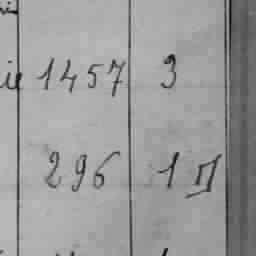 ie 1457 3
296 1 П